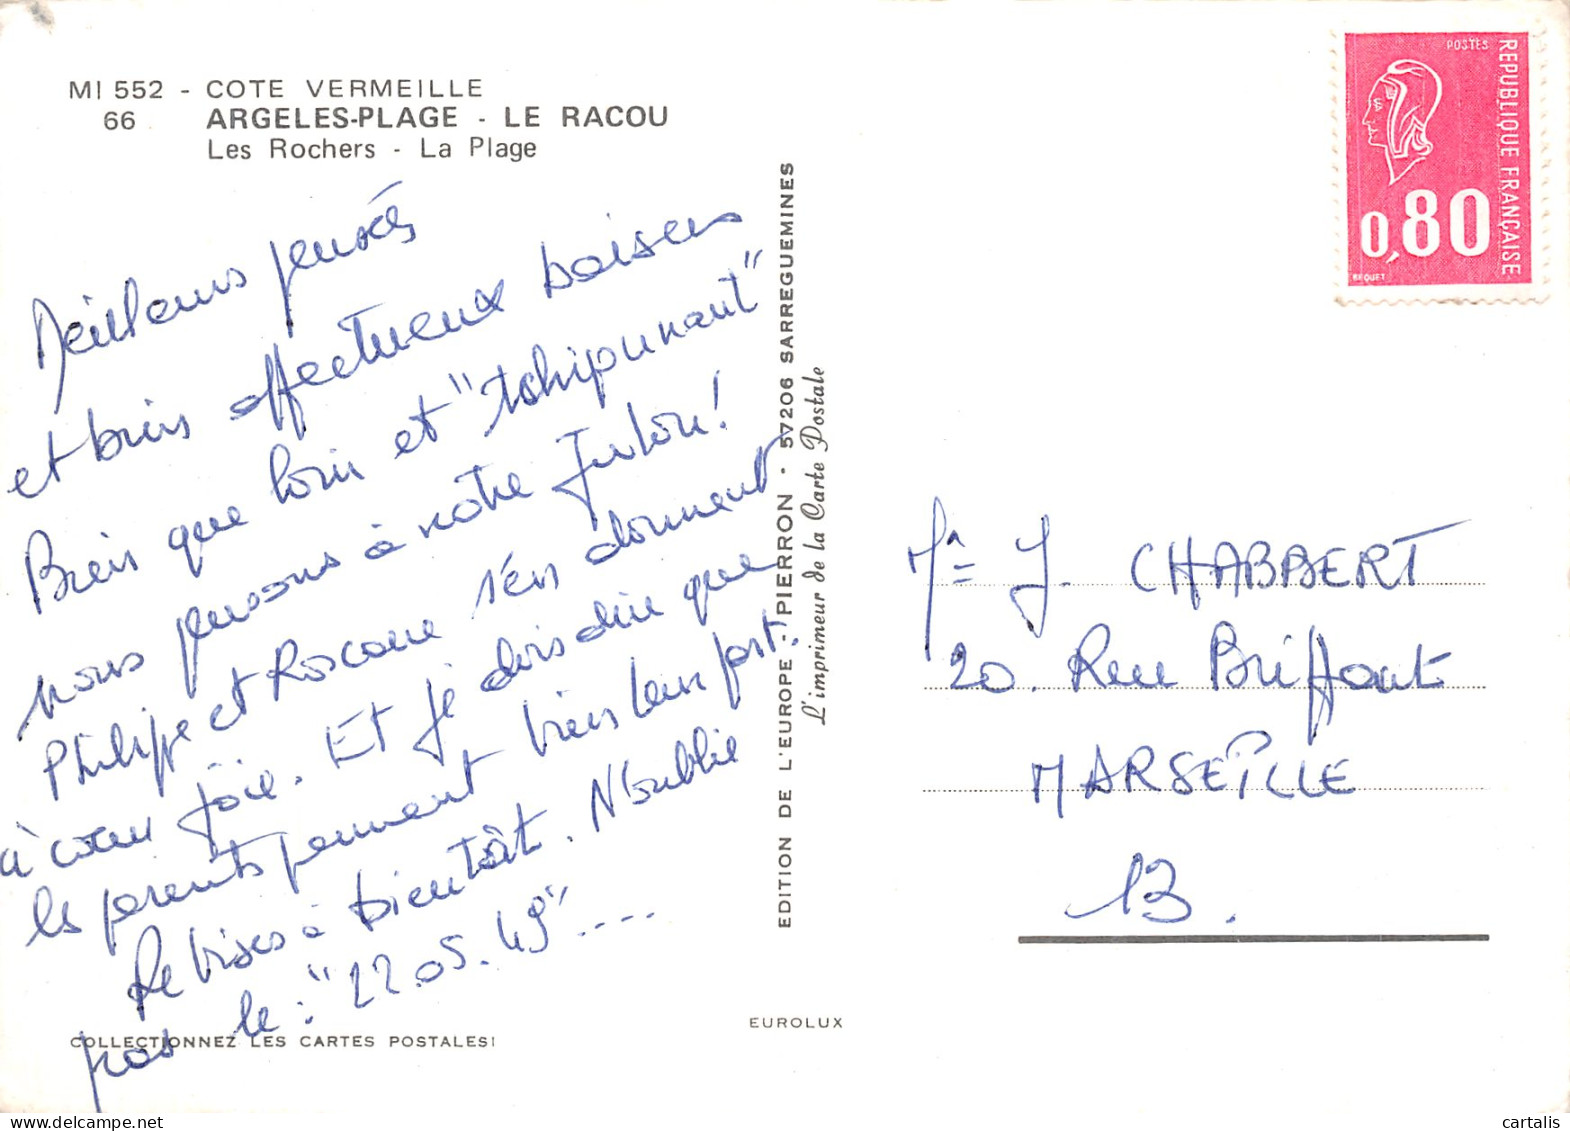 MI 552 - COTE VERMEILLE
66 ARGELES-PLAGE - LE RACOU
Les Rochers - La Plage
Meilleurs pensées
et bien affectueux baisers
Bien que loin et "tchipunaut"
nous pensons à notre Juton!
Philippe et Roscane s'en donnent
à cœur joie. Et je dois dire que
les parents prennent bien leur part.
Re bises à bientôt. N'oublie
pas le : "22.05.49"....
COLLECTIONNEZ LES CARTES POSTALES!
EDITION DE L'EUROPE - PIERRON - 57206 SARREGUEMINES
L'imprimeur de la Carte Postale
EUROLUX
POSTES
REPUBLIQUE FRANÇAISE
0,80
BEQUET
J. CHABBERT
20. Rue Briffaut
MARSEILLE
13.
cartalis